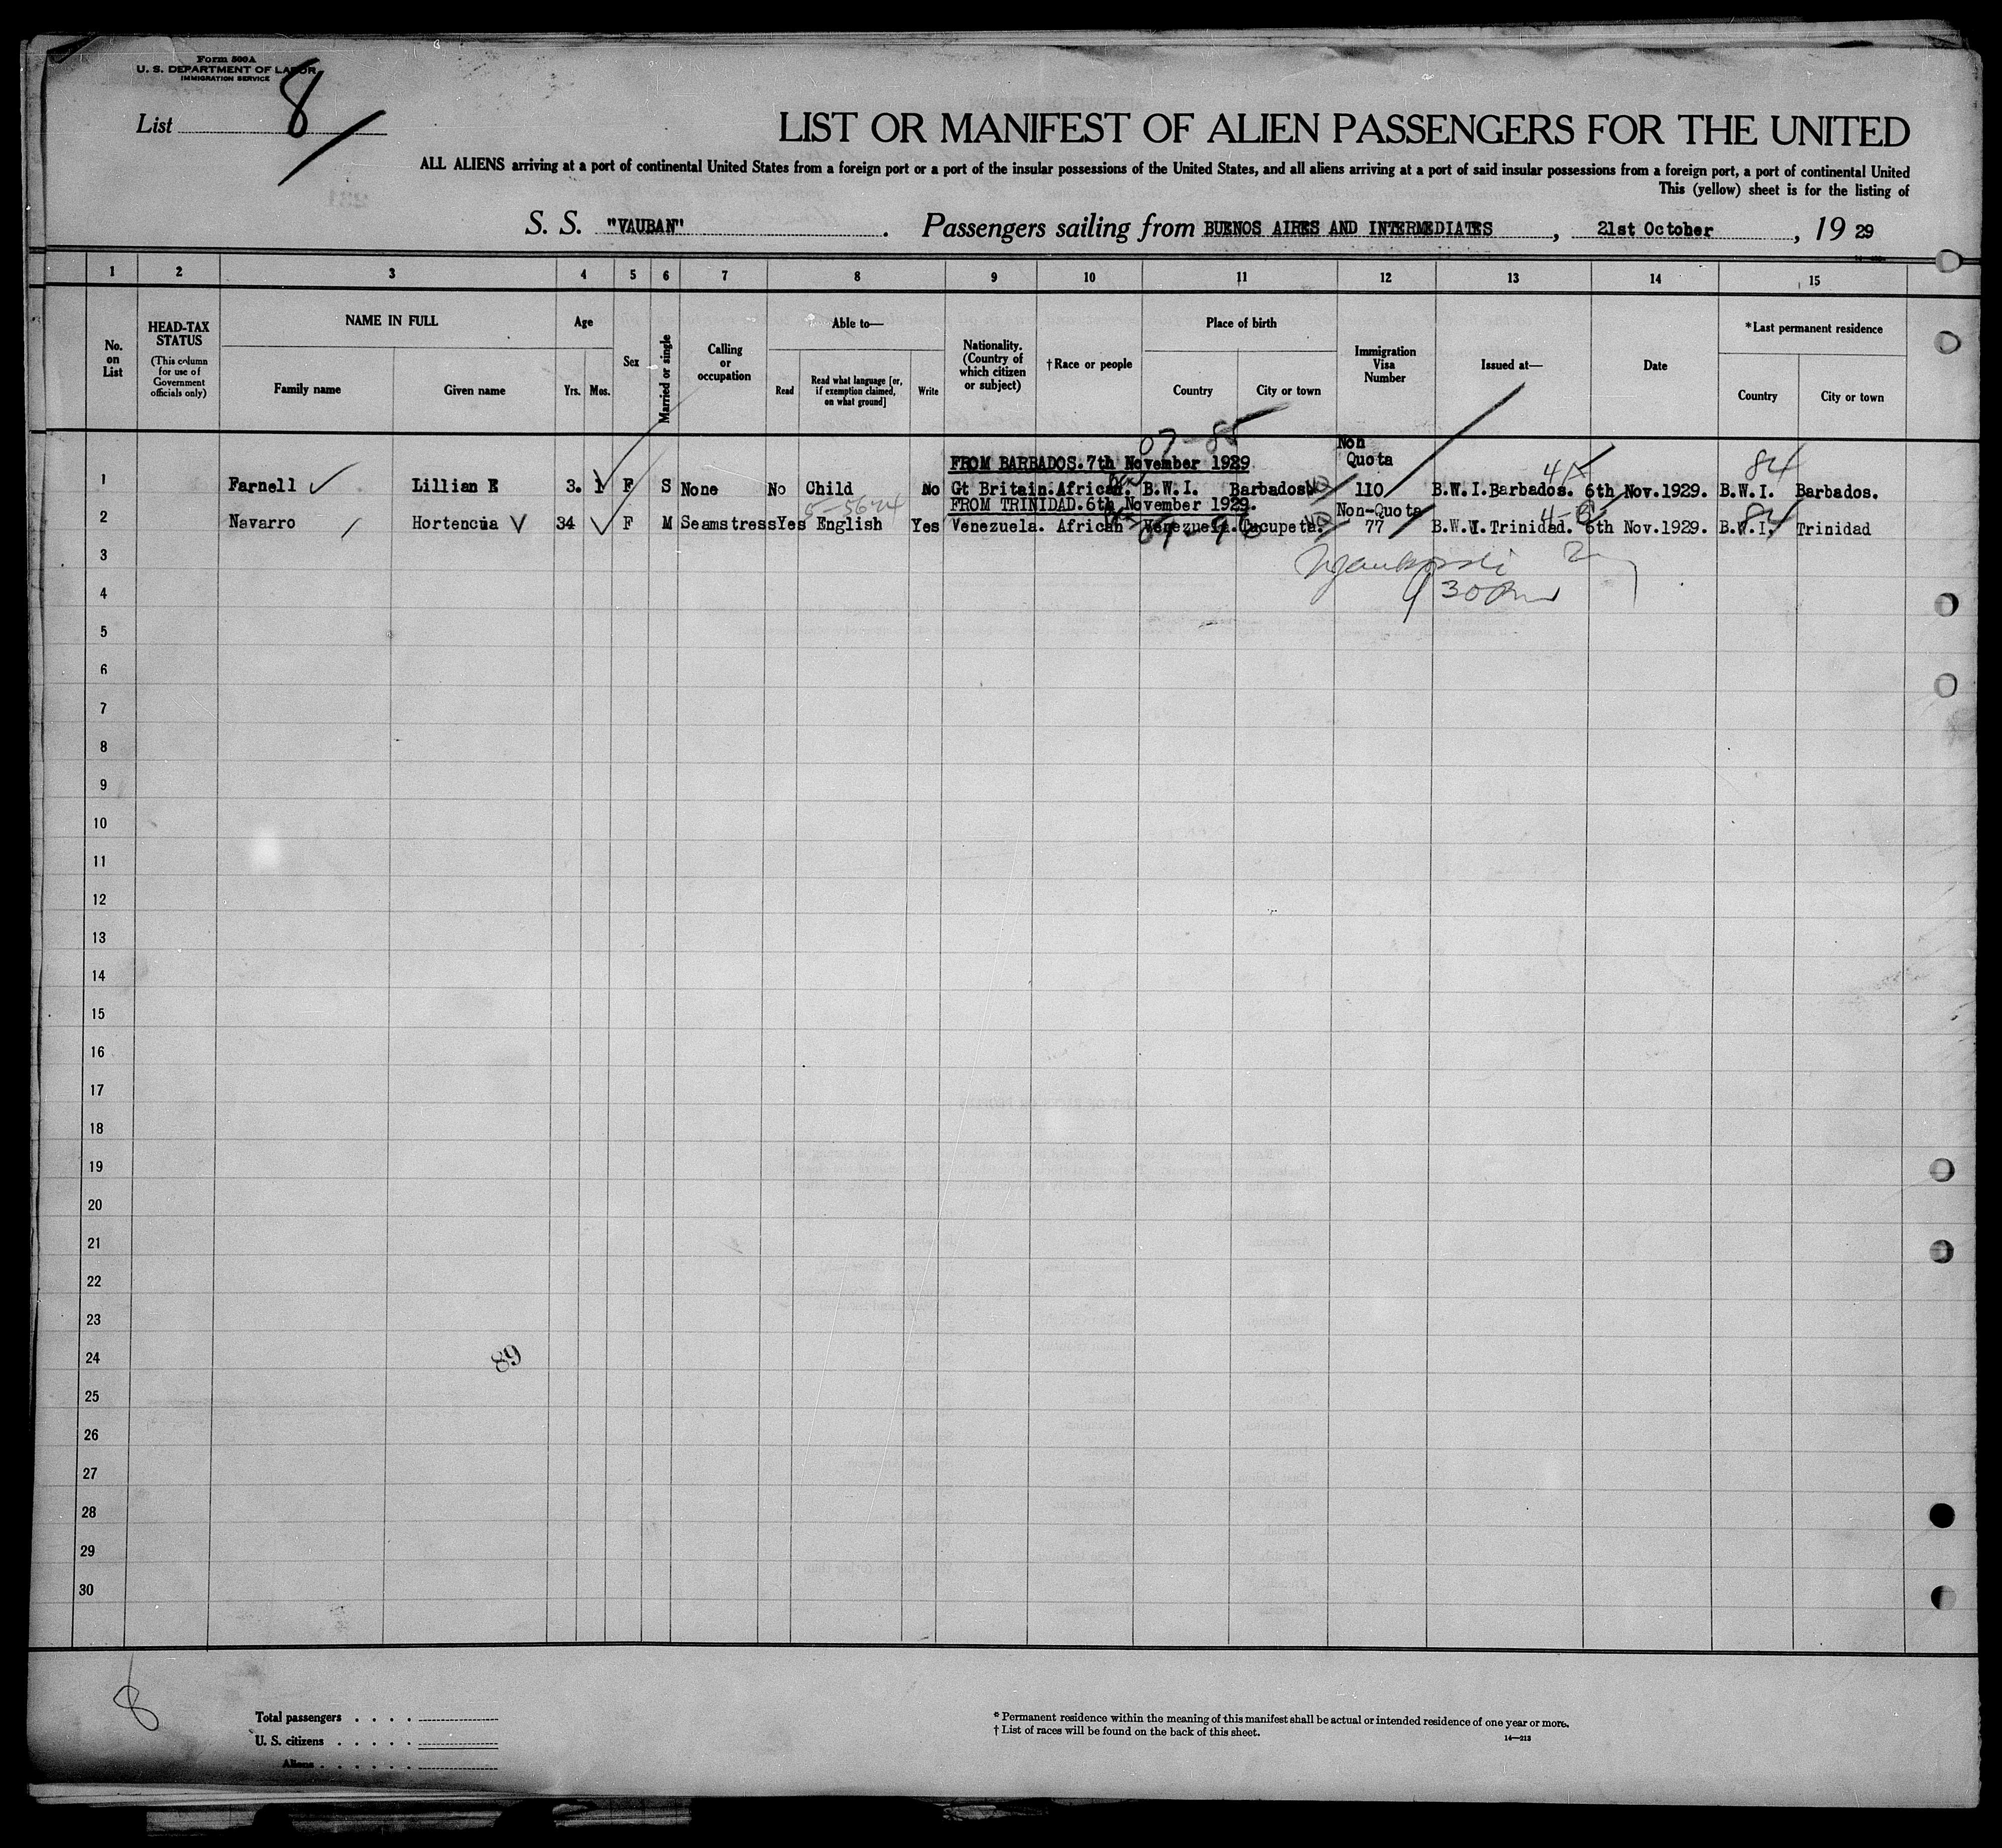 Form 500A
U. S. DEPARTMENT OF LABOR
IMMIGRATION SERVICE
List 8
LIST OR MANIFEST OF ALIEN PASSENGERS FOR THE UNITED
ALL ALIENS arriving at a port of continental United States from a foreign port or a port of the insular possessions of the United States, and all aliens arriving at a port of said insular possessions from a foreign port, a port of continental United
This (yellow) sheet is for the listing of
S. S. "VAUBAN" . Passengers sailing from BUENOS AIRES AND INTERMEDIATES , 21st October , 19 29
1 2 3 4 5 6 7 8 9 10 11 12 13 14 15
No. on List
HEAD-TAX STATUS
(This column for use of Government officials only)
NAME IN FULL
Family name Given name
Age
Yrs. Mos.
Sex
Married or single
Calling or occupation
Able to—
Read Read what language [or, if exemption claimed, on what ground] Write
Nationality. (Country of which citizen or subject)
†Race or people
Place of birth
Country City or town
Immigration Visa Number
Issued at—
Date
*Last permanent residence
Country City or town
07-85
FROM BARBADOS.7th November 1929 Non Quota
84
1 Farnell Lillian E 3. 1 F S None No Child No Gt Britain. African. B.W.I. Barbados. 110 B.W.I.Barbados. 6th Nov.1929. B.W.I. Barbados.
FROM TRINIDAD.6th November 1929. Non-Quota
84
2 Navarro Hortencia 34 F M Seamstress Yes English Yes Venezuela. African Venezuela. Cucupeta. 77 B.W.I.Trinidad. 6th Nov.1929. B.W.I. Trinidad
3
4
5
6
7
8
9
10
11
12
13
14
15
16
17
18
19
20
21
22
23
24
89
25
26
27
28
29
30
8
Total passengers . . . .
U. S. citizens . . . . .
Aliens . . . . . .
* Permanent residence within the meaning of this manifest shall be actual or intended residence of one year or more.
† List of races will be found on the back of this sheet.
14—213